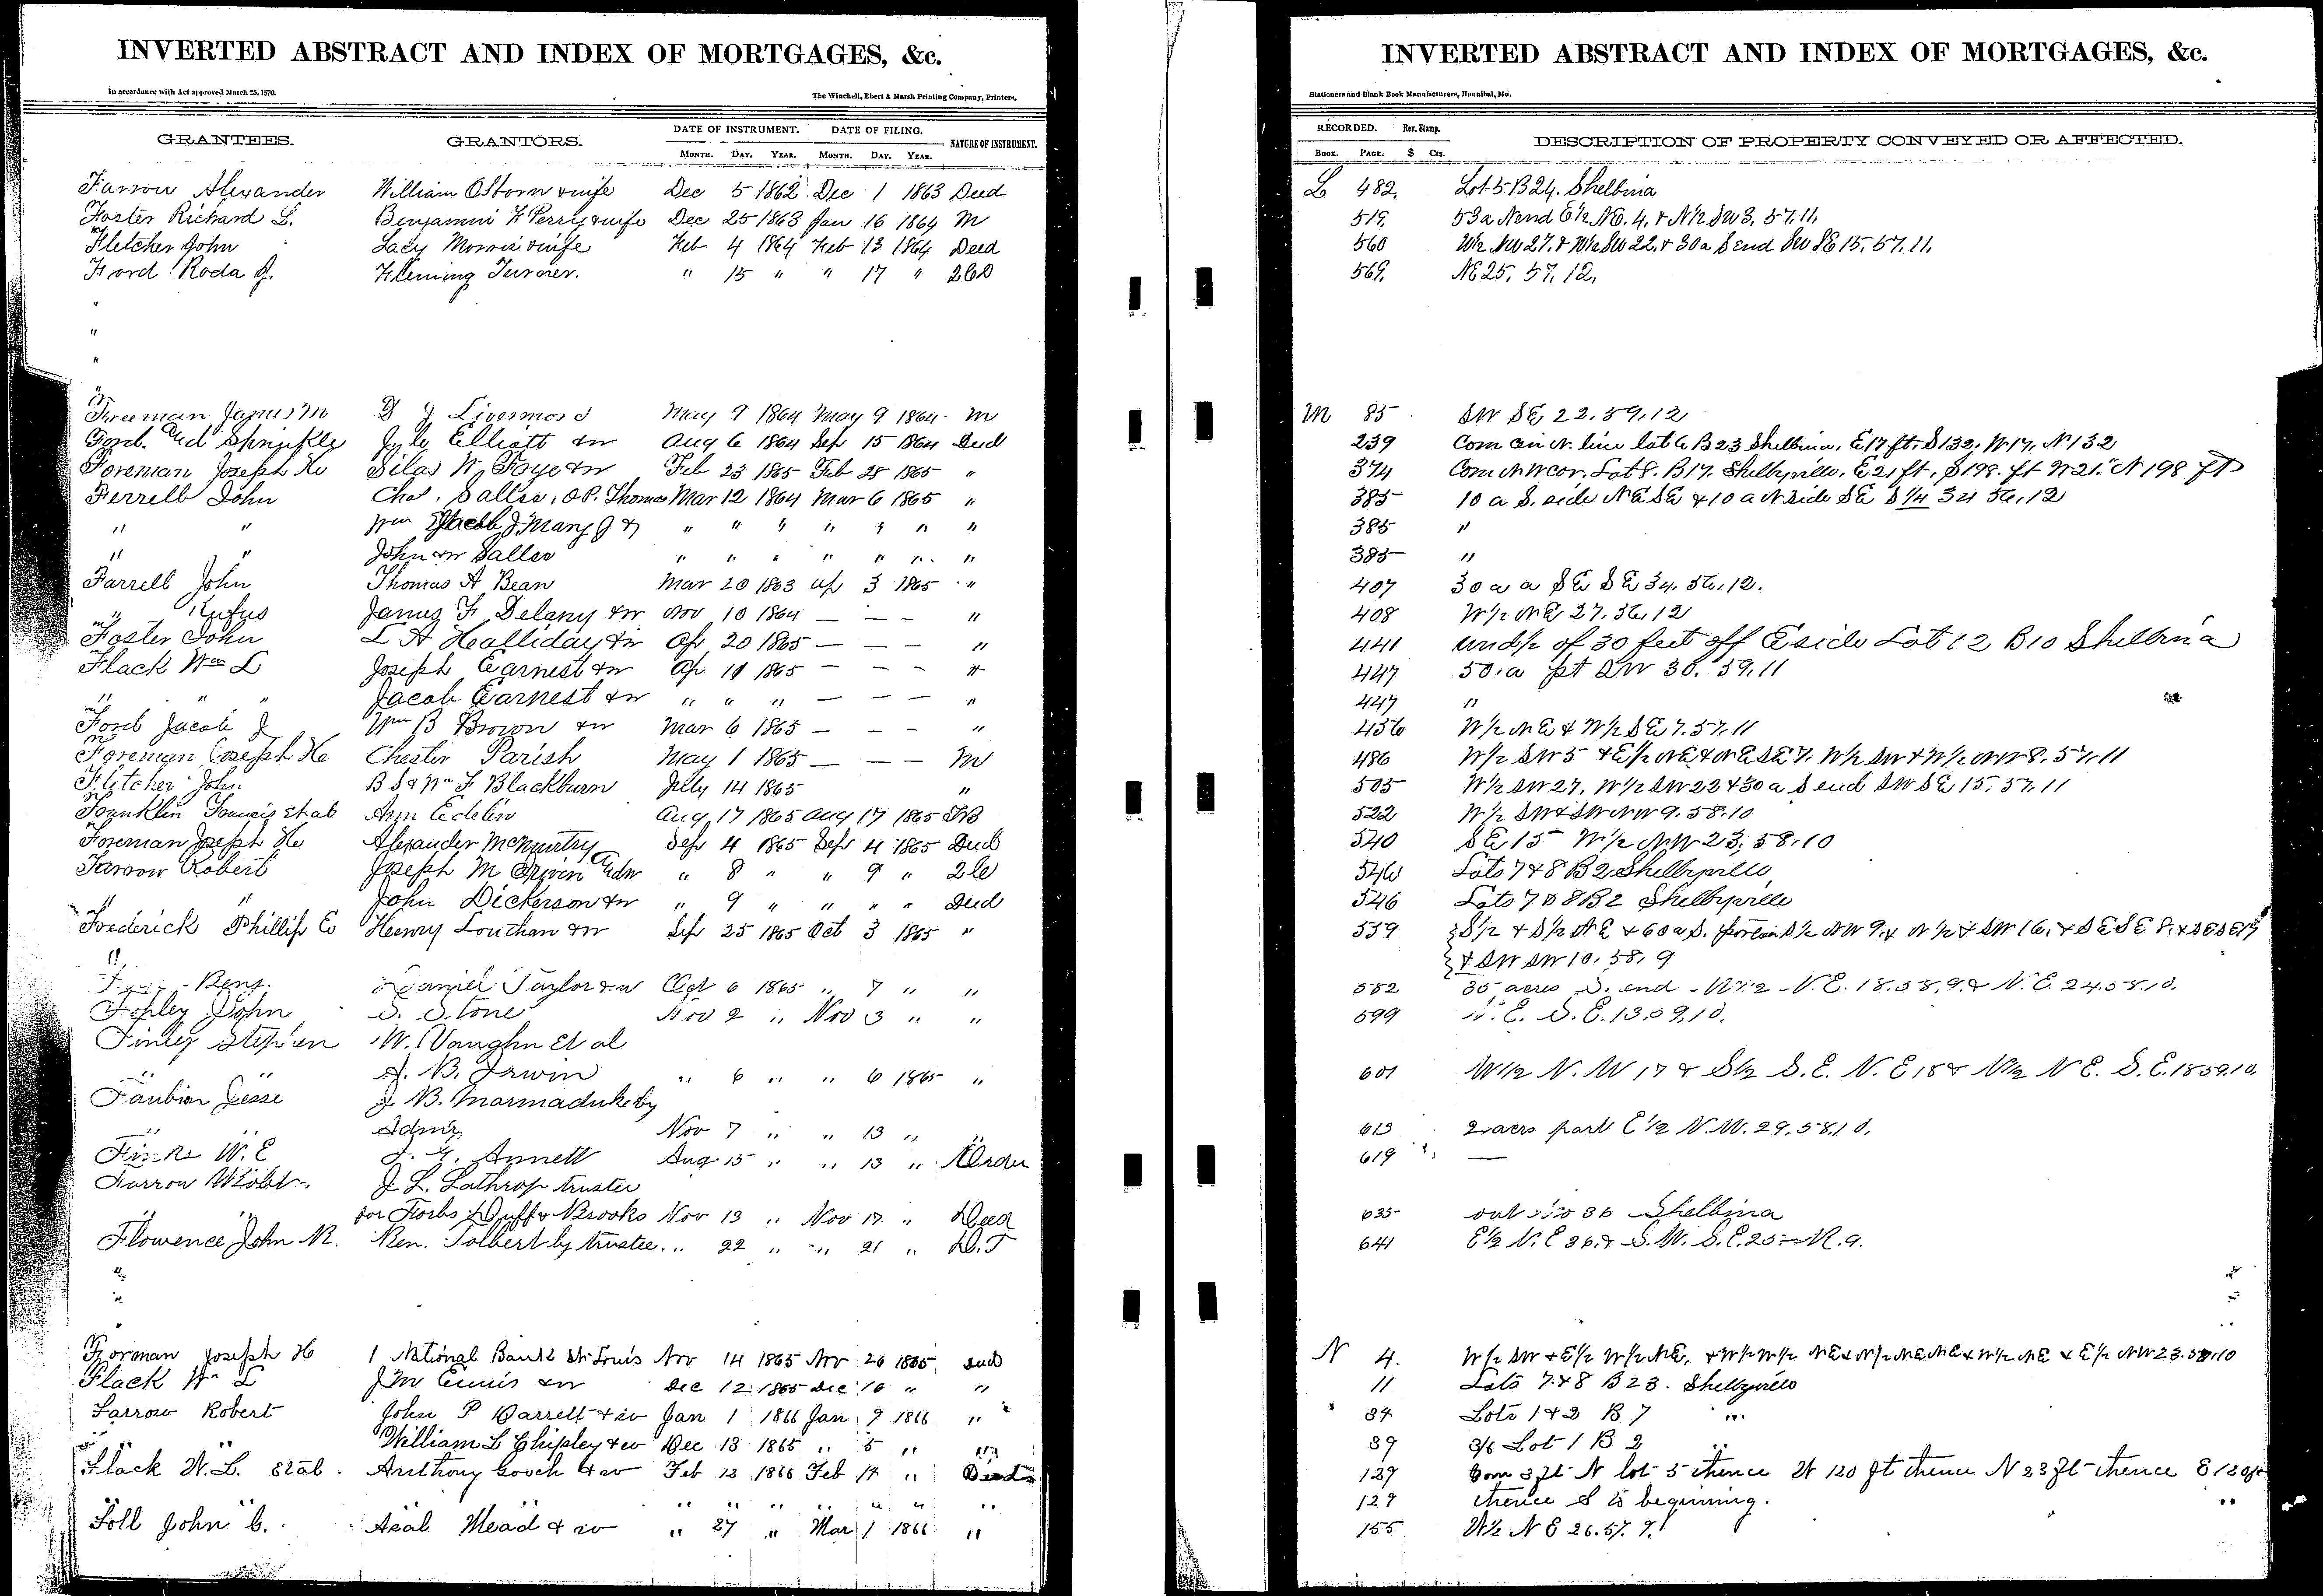 INVERTED ABSTRACT AND INDEX OF MORTGAGES, &c.
In accordance with Act approved March 25, 1870.
The Winchell, Ebert & Marsh Printing Company, Printers,
GRANTEES. GRANTORS. DATE OF INSTRUMENT. DATE OF FILING. NATURE OF INSTRUMENT.
MONTH. DAY. YEAR. MONTH. DAY. YEAR.
Farrow Alexander William Osborn & wife Dec 5 1862 Dec 1 1863 Deed
Foster Richard L. Benjamin F Perry & wife Dec 25 1863 Jan 16 1864 M
Fletcher John Lacy Morris & wife Feb 4 1864 Feb 13 1864 Deed
Ford Roda J. Fleming Turner. " 15 " " 17 " 
"
"
"
"
Freeman James M D J Livermore May 9 1864 May 9 1864 M
Ford. Sprinkle Elliott & w Aug 6 1864 Sep 15 1864 Deed
Foreman Joseph H Silas W Foye & w Feb 23 1865 Feb 25 1865 "
Ferrell John Chas. Sallee, O.P. Thomas Mar 12 1864 Mar 6 1865 "
" " Wm J Mary J & " " " " " " "
" " John & w Sallee " " " " " " "
Farrell John Thomas A Bean Mar 20 1863 Ap 3 1865 "
" Rufus James F Delany & w Nov 10 1864 — — — "
Foster John L A Halliday & w Ap 20 1865 — — — "
Flack Wm L Joseph Earnest & w Ap 10 1865 — — — "
" " " Jacob Earnest & w " " " — — — "
Ford Jacob J Wm B Brown & w Mar 6 1865 — — — "
Foreman Joseph H Chester Parish May 1 1865 — — — M
Fletcher John B S & Wm F Blackburn July 14 1865 "
Franklin Francis et al Ann Edelin Aug 17 1865 Aug 17 1865 TB
Foreman Joseph H Alexander McMurtry Sep 4 1865 Sep 4 1865 Deed
Farrow Robert Joseph M Irwin Adm " 8 " " 9 " 
" " John Dickerson & w " 9 " " " " Deed
Frederick Phillip C Henry Louthan & w Sep 25 1865 Oct 3 1865 "
"
Benj. Daniel Taylor & w Oct 6 1865 " 7 " "
John S. Stone Nov 2 " Nov 3 " "
Finley Stephen W. Vaughn et al
" " A. B. Irwin " 6 " " 6 1865 "
Faubion Jesse J. B. Marmaduke by
" " Admr Nov 7 " " 13 " "
Finks W. E Annett Aug 15 " " 13 " Order
Farrow J. L. Lathrop trustee
" " for Forbs Duff & Brooks Nov 13 " Nov 17 " Deed
Flowence John R. Ben. Tolbert by trustee " 22 " " 21 " D.T
"
"
Forman Joseph H 1 National Bank St Louis Nov 14 1865 Nov 20 1865 Deed
Flack Wm L J M Ennis & w Dec 12 1865 Dec 16 " "
Farrow Robert John P Garrett & w Jan 1 1866 Jan 9 1866 "
" " William L Chipley & w Dec 13 1865 " 5 " "
Flack W. L. et al Anthony Gooch & w Feb 12 1866 Feb 14 " Deed
" " " " " " "
Foll John C. Asal Mead & w " 27 " Mar 1 1866 "
INVERTED ABSTRACT AND INDEX OF MORTGAGES, &c.
Stationers and Blank Book Manufacturers, Hannibal, Mo.
RECORDED. Rev. Stamp. DESCRIPTION OF PROPERTY CONVEYED OR AFFECTED.
BOOK. PAGE. $ Cts.
L 482. Lot 5 B 24. Shelbina
519. 53 a N end E½ NE. 4. & N½ SW 3. 57. 11.
560 W½ NW 27. & W½ SW 22. & 30 a S end SW SE 15. 57. 11.
569. NE 25. 57. 12.
M 85 SW SE 22. 59. 12
239 Com on N. line lot 6 B 23 Shelbina. E 17 ft. S 132. W 17. N 132
374 Com NW cor. Lot 8. B 17. Shelbyville. E 21 ft, S 198 ft W 21. N 198 ft
385 10 a S. side NE SE & 10 a N side SE S ¼ 34 56. 12
385 "
385 "
407 30 a a SE SE 34. 56. 12.
408 W½ NE 27. 56. 12
441 und ½ of 30 feet off E side Lot 12 B 10 Shelbina
447 50. a pt SW 30. 59. 11
447 "
456 W½ NE & W½ SE 7. 57. 11
486 W½ SW 5 & E½ NE & NE SE 7. W½ SW & W½ NW 8. 57. 11
505 W½ SW 27. W½ SW 22 & 30 a S end SW SE 15. 57. 11
522 W½ SW & SW NW 9. 58. 10
540 SE 15 W½ NW 23. 58. 10
546 Lots 7 & 8 B 2 Shelbyville
546 Lots 7 & 8 B 2 Shelbyville
559 S½ & S½ NE & 60 a S. portion S½ NW 9. & N½ & SW 16. & SE SE 8. & SE SE 17
& SW SW 10. 58. 9
582 35 acres S. end W½ N.E. 18. 58. 9. & N.E. 24. 58. 10.
599 N. E. S. E. 13. 59. 10.
601 W½ N. W 17 & S½ S. E. N. E 18 & N½ N E. S. E. 18 59 10.
613 2 acrs part E½ N. W. 29. 58. 10.
619 —
635 out 36 Shelbina
641 E½ N. E 36. & S. W. S. E. 25 R. 9.
N 4. W½ SW & E½ W½ NE, & W½ W½ NE & N½ NE NE & W½ NE & E½ NW 23. 58. 10
11 Lots 7 & 8 B 23. Shelbyville
84 Lots 1 & 2 B 7 "
89 3/6 Lot 1 B 2 "
129 Com 3 ft N lot 5 thence W 120 ft thence N 23 ft thence E 120 ft
129 thence S to beginning. "
155 W½ N E 26. 57. 9.